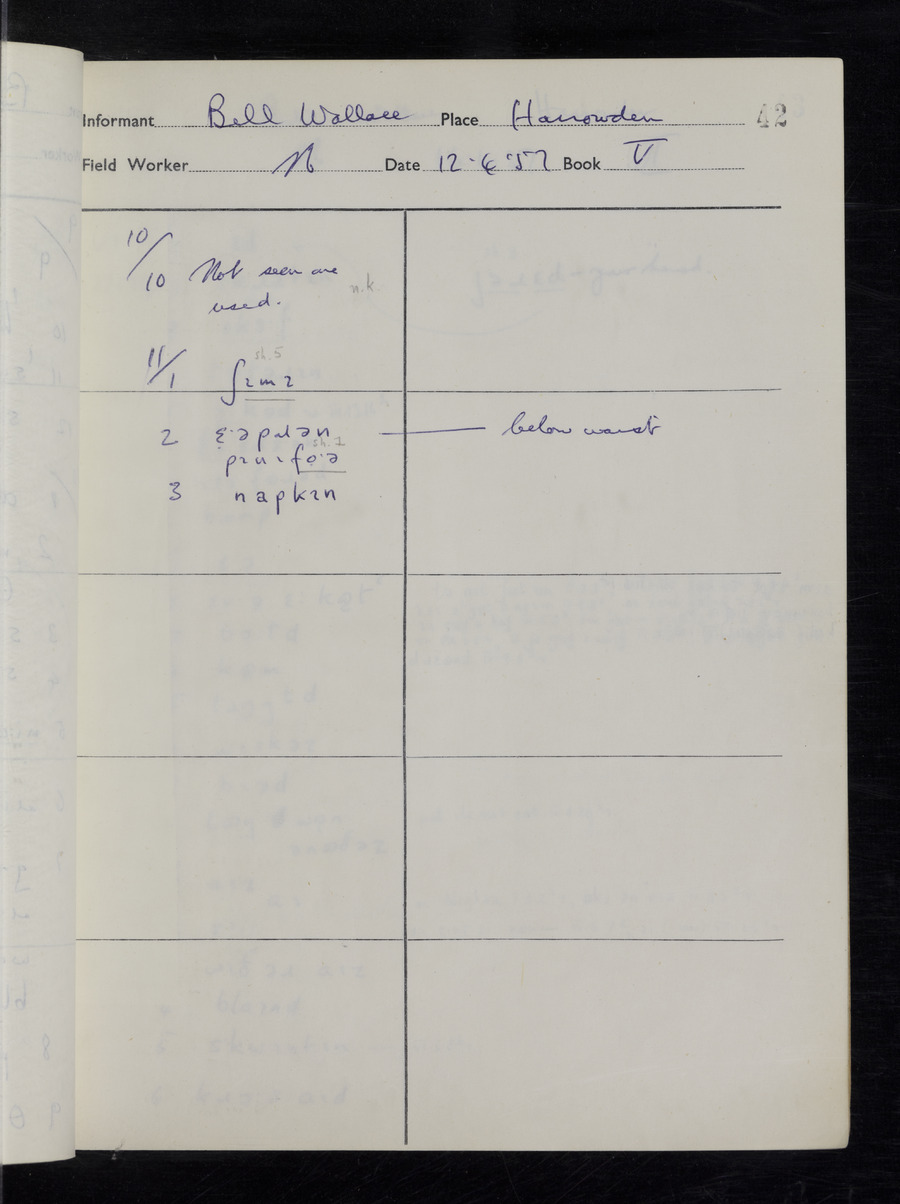 Informant Bill Wallace Place Harrowden 42
Field Worker Date 12·6·'57 Book V
10/
10 Not seen are n.k.
used.
11/1 sh. 5
ʃɪmɪ
2 below waist
sh. 1
3 napkɪn